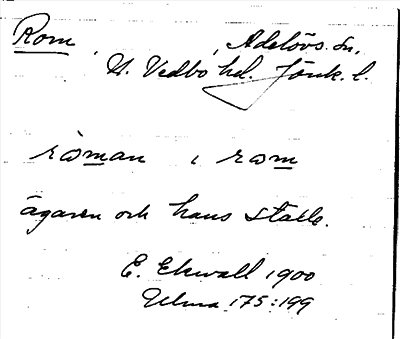 Rom, Adelövs sn,
N. Vedbo hd. Jönk. l.
roman i rom
ägaren och hans ställe.
E. Ekwall 1900
Ulma 175:199